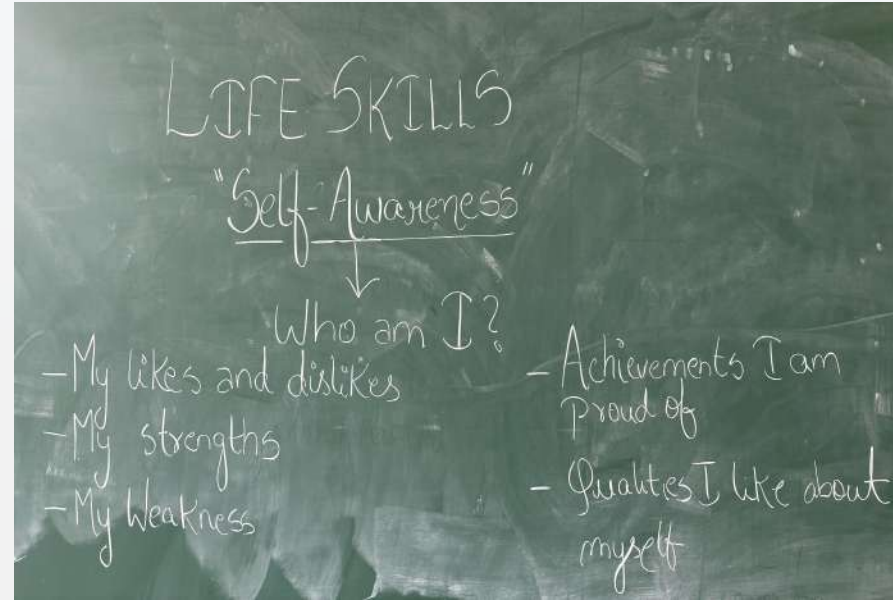 LIFE SKILLS
"Self-Awareness"
Who am I?
- My likes and dislikes
- My strengths
- My Weakness
- Achievements I am
Proud of
- Qualities I like about
myself